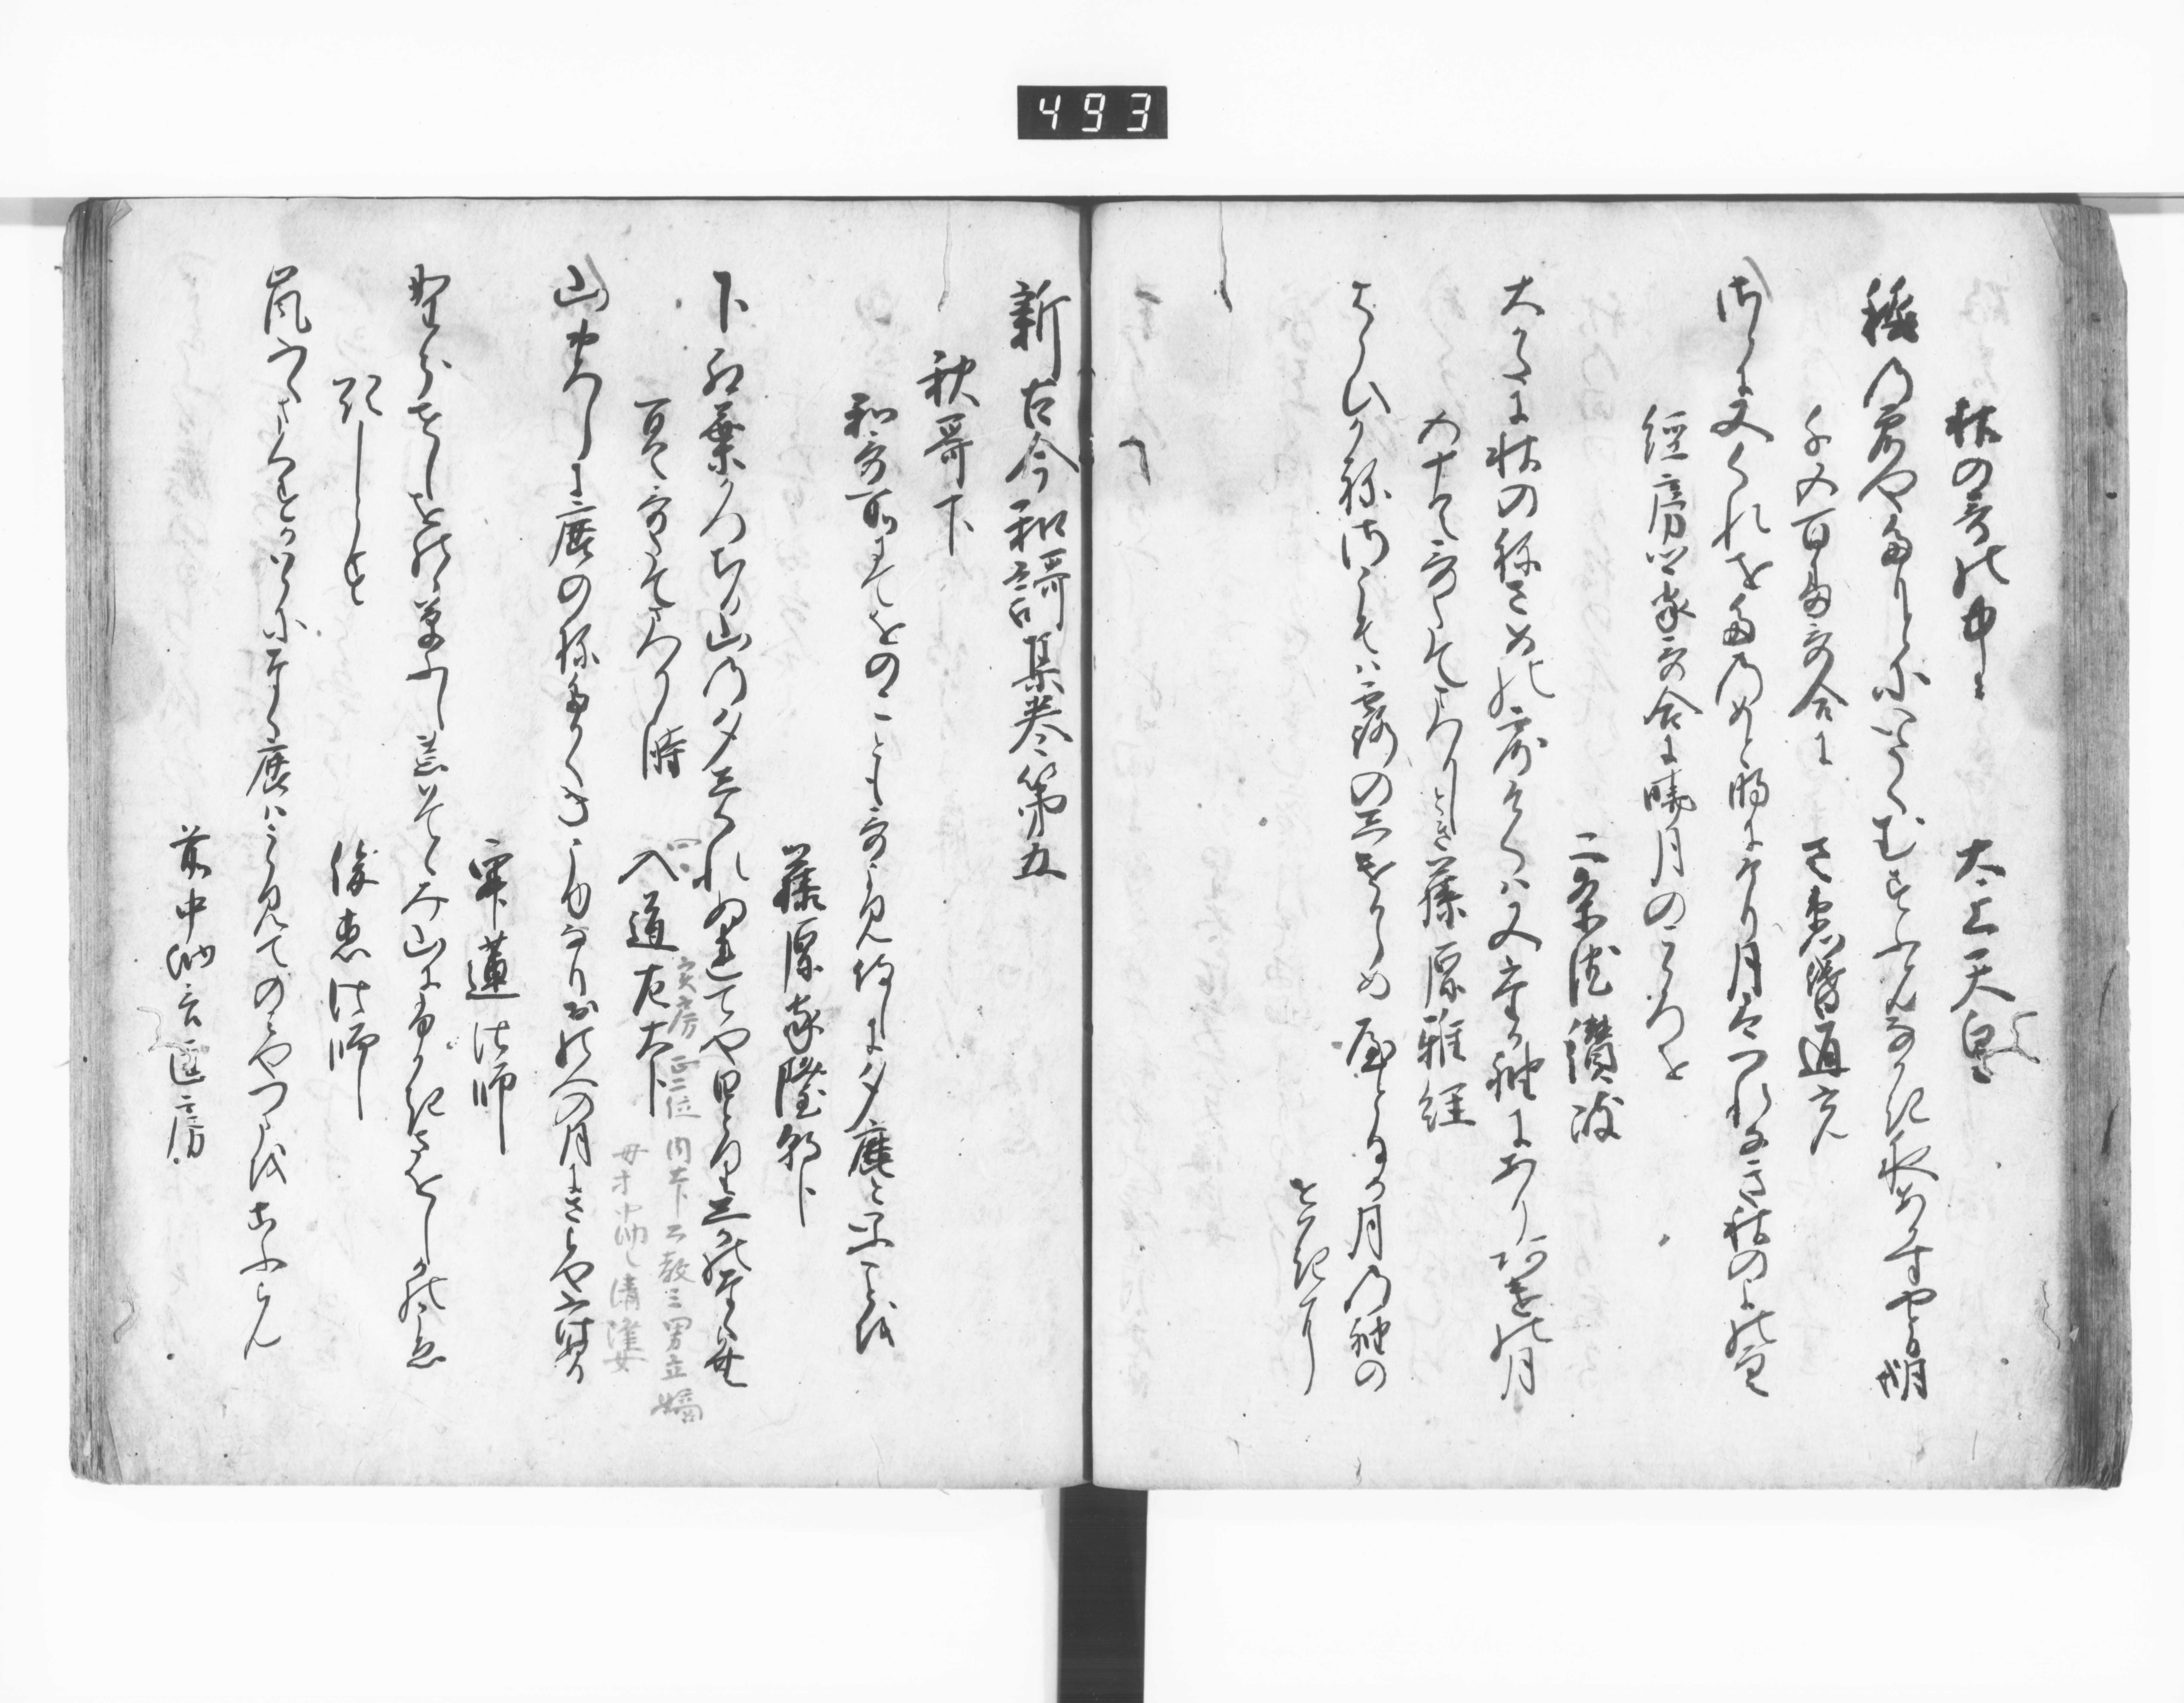 秋の哥の中に　太上天皇
秋の露やたもとにいたくむすふらんなかき夜あかすやとる月哉
千五百番哥合に　左衛門督通光
さらに又くれをたのめと明にけり月はつれなき秋のよの空
経房卿家哥合に暁月のこゝろを
二条院讃岐
大かたに秋のねさめの露けくは又たか袖にあり明の月
五十首哥たてまつりし時　藤原雅経
はらひかねさこそは露のしけからめ宿るか月の袖の
せはきに
新古今和謌集巻第五
秋哥下
和哥所にてをのことも哥よみ侍しに夕鹿といふことを
藤原家隆朝臣
下紅葉かつちる山の夕しくれぬれてやひとり鹿のなくらむ
百首哥たてまつりし時　入道左大臣
実房 正二位 内大臣公教三男立嫡
母 中納言清隆女
山おろしに鹿の音たかくきこゆなり尾上の月にさ夜や深ぬる
寂蓮法師
野分せしをのゝ草ふし荒はてゝみ山にふかきさをしかのこゑ
題しらす　俊恵法師
嵐ふくまくすか原になく鹿はうらみてのみやつまをこふらん
前中納言匡房